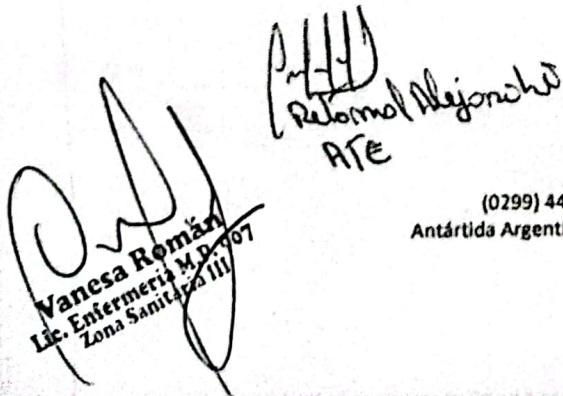 Retamal Alejandro
ATE
(0299) 44
Antártida Argenti
Vanesa Román
Lic. Enfermería M.P. 907
Zona Sanitaria III